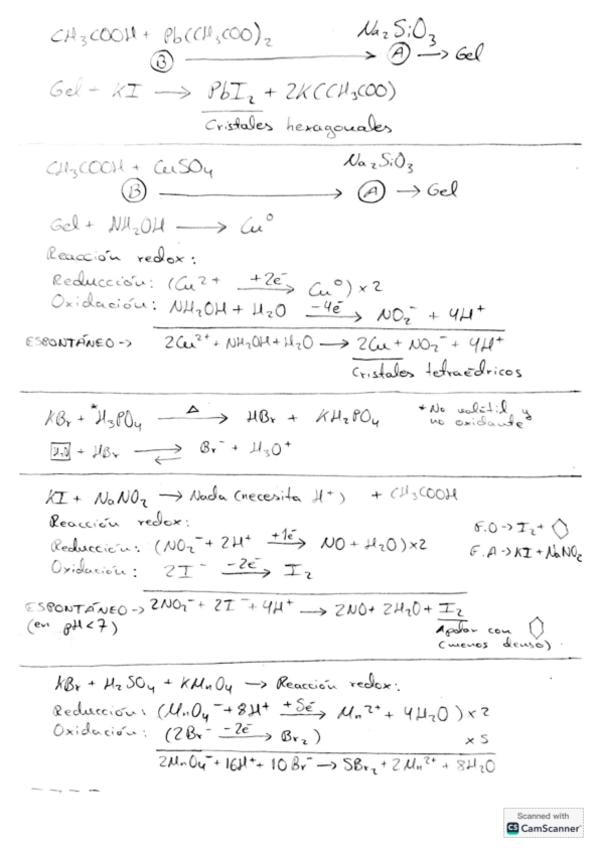 CH₃COOH + Pb(CH₃COO)₂ Na₂SiO₃
Ⓑ ⟶ Ⓐ ⟶ Gel
Gel + KI ⟶ PbI₂ + 2K(CH₃COO)
Cristales hexagonales
CH₃COOH + CuSO₄ Na₂SiO₃
Ⓑ ⟶ Ⓐ ⟶ Gel
Gel + NH₂OH ⟶ Cu⁰
Reacción redox:
Reducción: (Cu²⁺ +2e⁻⟶ Cu⁰) × 2
Oxidación: NH₂OH + H₂O −4e⁻⟶ NO₂⁻ + 4H⁺
ESPONTÁNEO → 2Cu²⁺ + NH₂OH + H₂O ⟶ 2Cu + NO₂⁻ + 4H⁺
Cristales tetraédricos
KBr + *H₃PO₄ Δ⟶ HBr + KH₂PO₄ * No volátil y
no oxidante
H₂O + HBr ⇌ Br⁻ + H₃O⁺
KI + NaNO₂ ⟶ Nada (necesita H⁺) + CH₃COOH
Reacción redox: F.O → I₂ + ⌬
Reducción: (NO₂⁻ + 2H⁺ +1e⁻⟶ NO + H₂O) × 2 F.A → KI + NaNO₂
Oxidación: 2I⁻ −2e⁻⟶ I₂
ESPONTÁNEO → 2NO₂⁻ + 2I⁻ + 4H⁺ ⟶ 2NO + 2H₂O + I₂
(en pH<7) Apolar con ⌬
(menos denso)
KBr + H₂SO₄ + KMnO₄ ⟶ Reacción redox:
Reducción: (MnO₄⁻ + 8H⁺ +5e⁻⟶ Mn²⁺ + 4H₂O) × 2
Oxidación: (2Br⁻ −2e⁻⟶ Br₂) × 5
2MnO₄⁻ + 16H⁺ + 10Br⁻ ⟶ 5Br₂ + 2Mn²⁺ + 8H₂O
Scanned with
CS CamScanner